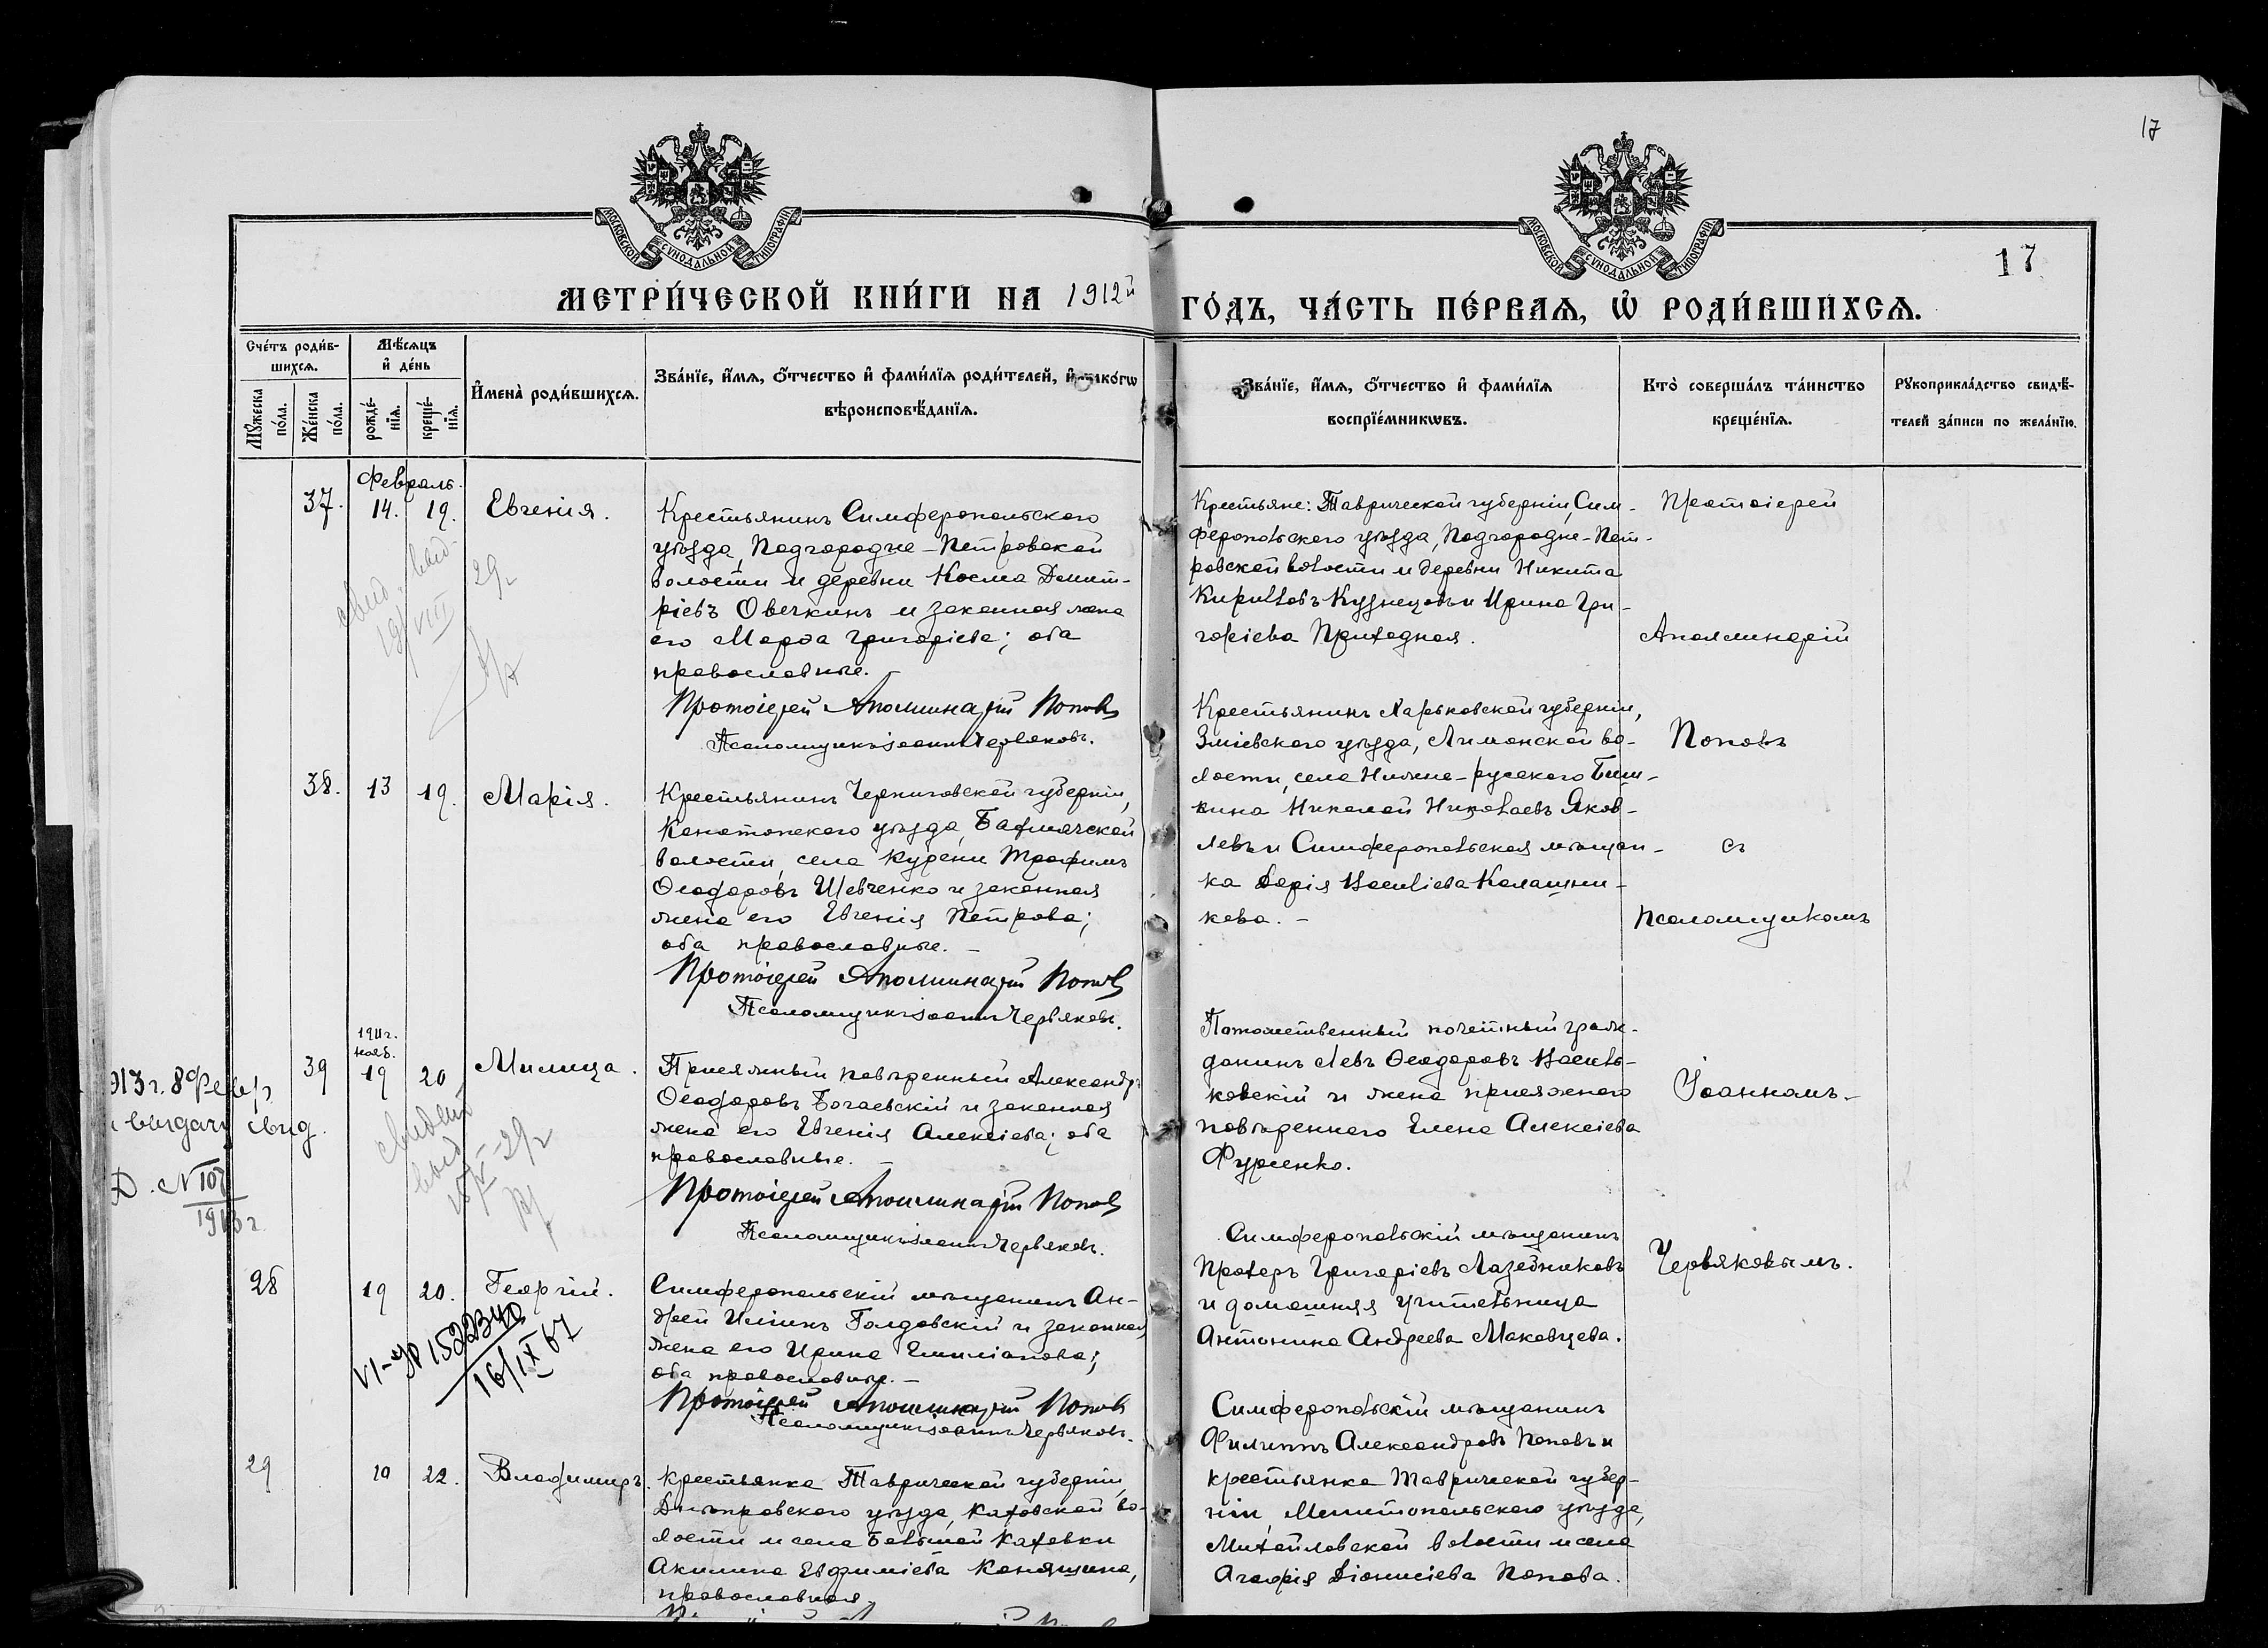 17
МОСКОВСКОЙ СУНОДАЛЬНОЙ ТИПОГРАФІИ
МОСКОВСКОЙ СУНОДАЛЬНОЙ ТИПОГРАФІИ
17
МЕТРИ́ЧЕСКОЙ КНИ́ГИ НА 1912й ГО́ДЪ, ЧА́СТЬ ПЕ́РВАѦ, Ѡ҆ РОДИ́ВШИХСѦ.
Сче́тъ роди́в-
шихсѧ.
Мꙋ́жеска по́ла.
Же́нска по́ла.
Мѣ́сѧцъ
и҆ де́нь
рожде́-
нїѧ.
креще́-
нїѧ.
И҆мена̀ роди́вшихсѧ.
Зва́нїе, и҆́мѧ, ѻ҆́тчество и҆ фами́лїѧ роди́телей, и҆ како́гѡ
вѣроисповѣ́данїѧ.
Зва́нїе, и҆́мѧ, ѻ҆́тчество и҆ фами́лїѧ
воспрїе́мникѡвъ.
Кто̀ соверша́лъ та́инство
креще́нїѧ.
Рꙋкоприкла́дство свидѣ́-
телей за́писи по жела́нїю.
Февраль.
37. 14. 19. Евгенія.
Крестьянинъ Симферопольского
уѣзда, Подгородне-Петровской
волости и деревни Косма Димит-
ріевъ Овечкинъ и законная жена
его Марѳа Григоріева; оба
православные. –
Протоіерей Аполлинарій Поповъ
Псаломщикъ Іоаннъ Червяковъ.
Крестьяне: Таврической губерніи, Сим-
феропольского уѣзда, Подгородне-Пет-
ровской волости и деревни Никита
Кирилловъ Кузнецовъ и Ирина Гри-
горіева Приходная.
Протоіерей
Аполлинарій
Поповъ
съ
псаломщикомъ
Іоанномъ –
Червяковымъ.
свид. выд.
19/VIII 29г
38. 13 19. Марія.
Крестьянинъ Черниговской губерніи,
Конотопского уѣзда, Бахмачской
волости, села Курени Трофимъ
Ѳеодоровъ Шевченко и законная
жена его Евгенія Петрова;
оба православные. –
Протоіерей Аполлинарій Поповъ
Псаломщикъ Іоаннъ Червяковъ.
Крестьянинъ Харьковской губерніи,
Зміевского уѣзда, Лиманской во-
лости, села Нижне-русского Биш-
кина Николай Николаевъ Яков-
левъ и Симферопольская мѣщан-
ка Дарія Василіева Калашни-
кова. –
1911г.
нояб.
39 19 20 Милица.
Присяжный повѣренный Александръ
Ѳеодоровъ Богаевскій и законная
жена его Евгенія Алексіева; оба
православные. –
Протоіерей Аполлинарій Поповъ
Псаломщикъ Іоаннъ Червяковъ.
Потомственный почетный граж-
данинъ Левъ Ѳеодоровъ Василь-
ковскій и жена присяжного
повѣренного Елена Алексіева
Фурсенко.
913г. 8 Февр
выдан свид.
№ 107
1913г.
28 19 20. Георгій.
Симферопольскій мѣщанинъ Ан-
дрей Иліинъ Голдовскій и законная
жена его Ирина Емиліанова;
оба православные. –
Протоіерей Аполлинарій Поповъ
Псаломщикъ Іоаннъ Червяковъ.
Симферопольскій мѣщанинъ
Прохоръ Григоріевъ Лазебниковъ
и домашняя учительница
Антонина Андреева Маковцева.
VI-УР 1522340
16/IX 67
29 10 22. Владимиръ.
Крестьянка Таврической губерніи,
Днѣпровского уѣзда, Каховской во-
лости и села Большой Каховки
Акилина Евфиміева Коняшина,
православная.
Симферопольскій мѣщанинъ
Филиппъ Александровъ Поповъ и
крестьянка Таврической губер-
ніи, Мелитопольского уѣзда,
Михайловской волости и села
Агафія Діонисіева Попова.